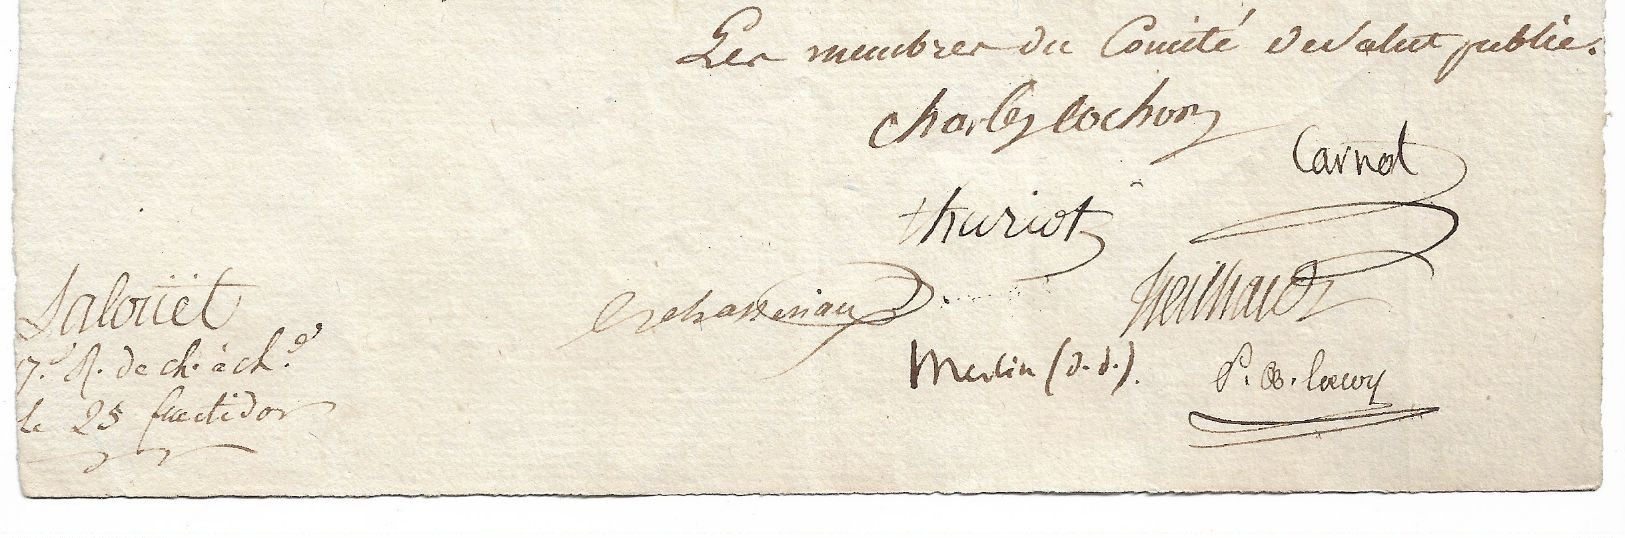 Les membres du Comité de Salut public.
Charles Cochon
Carnot
thuriot
Treilhard
Eschasseriaux
Merlin (d. d.).
P. A. Laloy
Saloüet
7.e R. de ch. à ch.al
le 25 fructidor